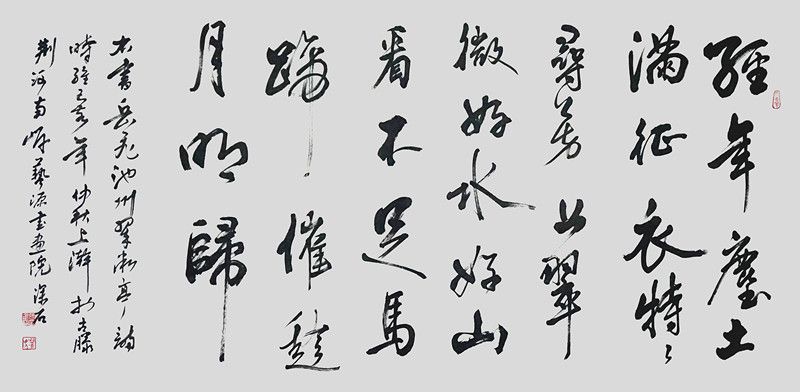 經年塵土
滿征衣特〻
尋芳上翠
微好水好山
看不足馬
蹄催趁
月明歸
右書岳飛池州翠微亭詩
時維己亥年仲秋上澣於古滕
荆河南岸藝源書畫院深石